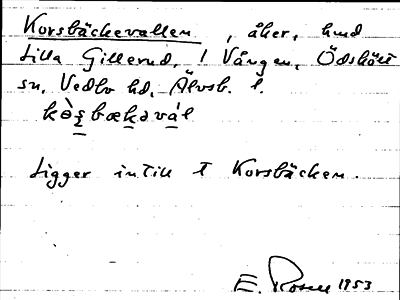 Korsbäckevallen, åker, hmd
Lilla Gillerud, 1 Vången, Ödskölt
sn, Vedbo hd, Älvsb. l.
kòs̱bækəvál
Ligger intill t Korsbäcken.
E. Rosen 1953